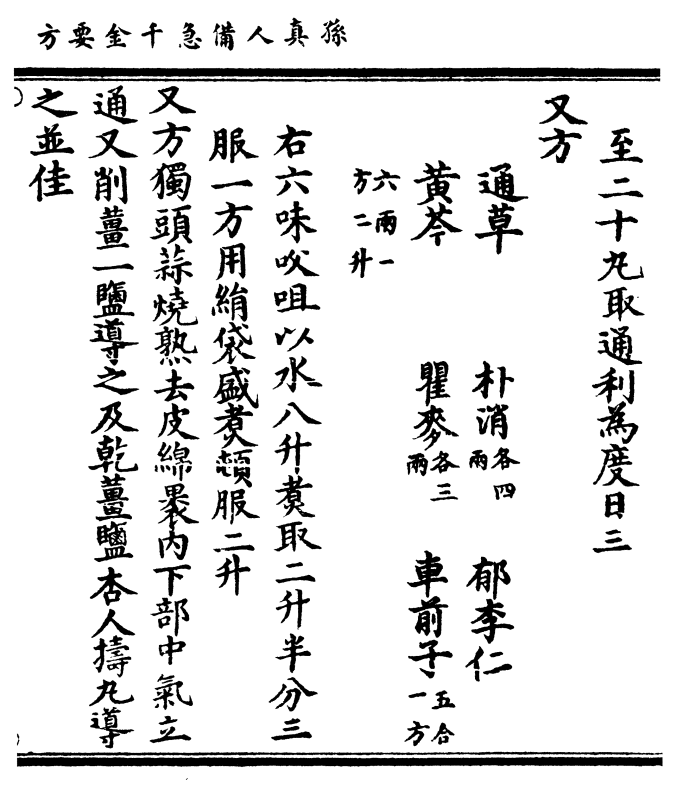 孫真人備急千金要方
至二十丸取通利為度日三
又方
通草 朴消各四兩 郁李仁
黃芩 瞿麥各三兩 車前子五合一方
六兩一方二升
右六味㕮咀以水八升煑取二升半分三
服一方用絹袋盛煑頓服二升
又方獨頭蒜燒熟去皮綿褁內下部中氣立
通又削薑一鹽導之及乾薑鹽杏人擣丸導
之並佳